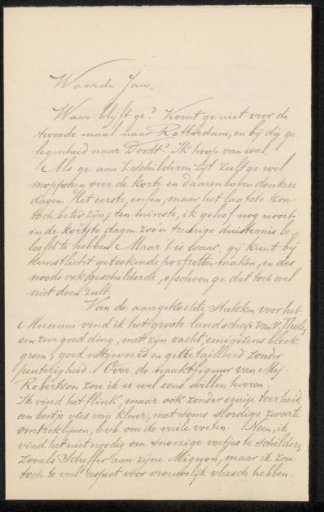 Waarde Jan,
Waar blijft ge? Komt ge niet voor de
tweede maal naar Rotterdam, en bij die ge-
legenheid naar Dordt? Ik hoop van wel.
Als ge aan 't schilderen zijt zult ge wel
mopperen over de korte en daarenboven donkere
dagen. Het eerste, enfin, maar het laatste kon
toch beter zijn; ten minste, ik geloof nog nooit
in de kortste dagen zoo'n treurige duisternis be-
leefd te hebben. Maar 't is waar, gij kunt bij
kunstlicht geteekende portretten maken, en des-
noods ook geschilderde, ofschoon ge dat toch wel
niet doen zult.
Van de aangekochte stukken voor het
Museum vind ik het groote landschap van v. Thol,
een zeer goed ding, met zijn zacht, eenigszins bleek
groen, goed uitgevoerd en gedetailleerd zonder
peuterigheid. Over de naaktfiguur van Mej.
Robertson zou ik u wel eens willen hooren.
Ik vind het flink, maar ook zonder eenige teerheid
en beetje vies van kleur, met soms slordige zwarte
omtreklijnen, b.v. om de voeten. Neen, ik
vind het niet noodig om snoezige voetjes te schilderen,
zooals Scheffer aan zijne Mignon, maar ik zou
toch te veel respect voor vrouwelijk vleesch hebben.